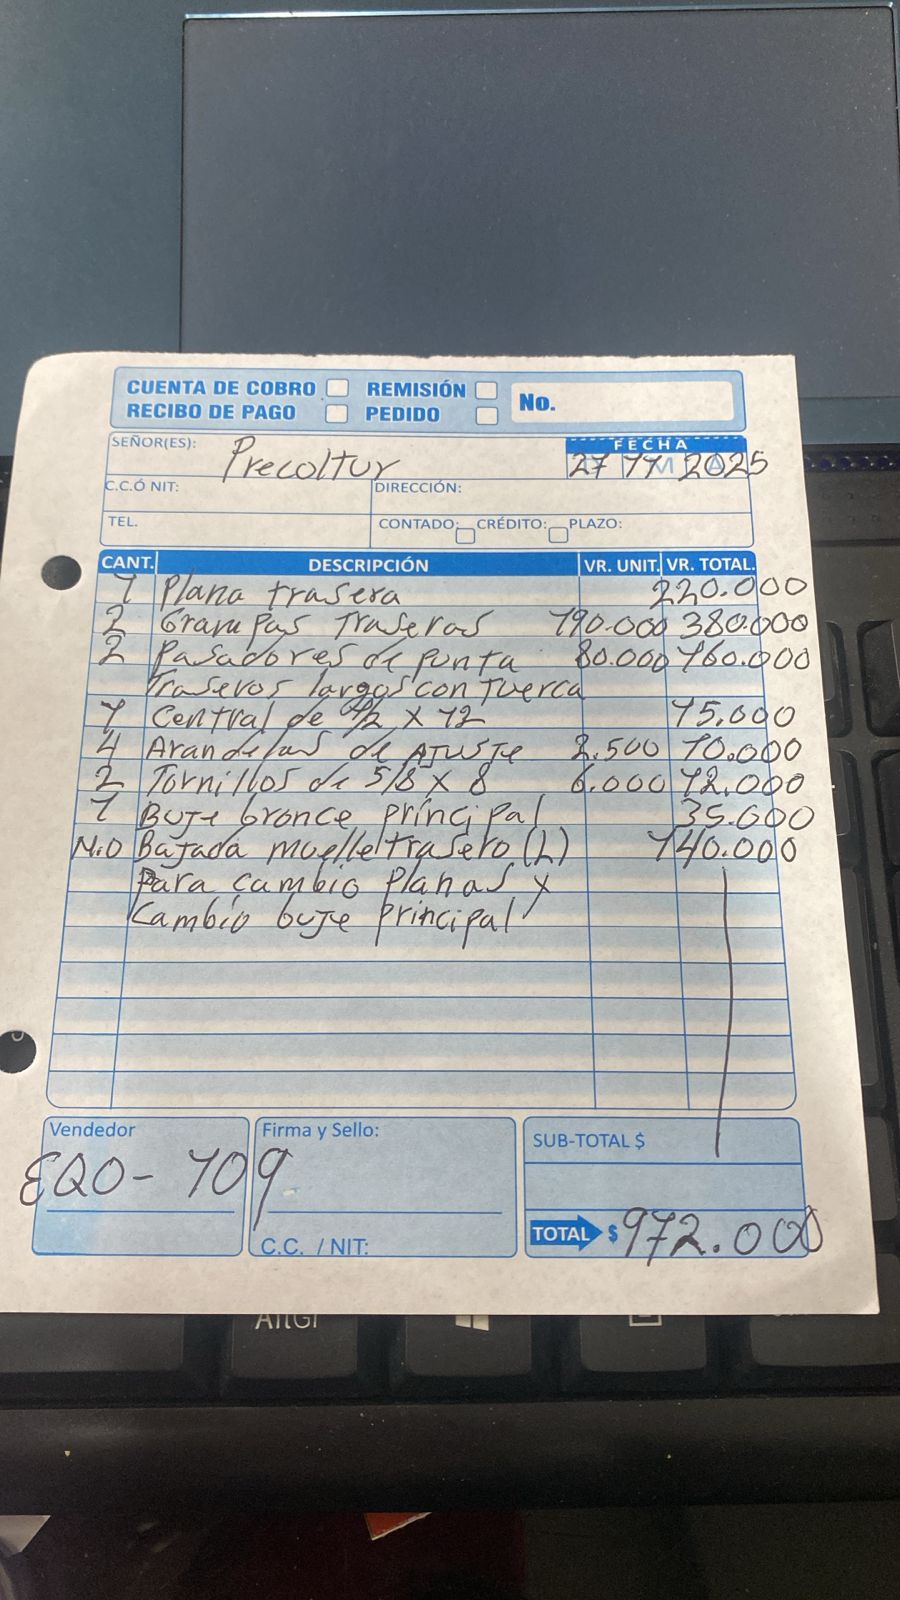 CUENTA DE COBRO REMISIÓN
RECIBO DE PAGO PEDIDO No.
SEÑOR(ES): Precoltur FECHA
27 11 2025
C.C.Ó NIT: DIRECCIÓN:
TEL. CONTADO: CRÉDITO: PLAZO:
CANT. DESCRIPCIÓN VR. UNIT. VR. TOTAL.
1 Plana trasera 220.000
2 Grampas Traseras 190.000 380.000
2 Pasadores de punta 80.000 160.000
Traseros largos con Tuerca
1 Central de 1/2 X 12 15.000
4 Arandelas de AJUSTE 2.500 10.000
2 Tornillos de 5/8 X 8 6.000 12.000
1 Buje bronce principal 35.000
M.O Bajada muelle trasero (L) 140.000
Para cambio planas y
Cambio buje principal
Vendedor Firma y Sello: SUB-TOTAL $
EQO- 109
TOTAL $ 972.000
C.C. / NIT:
AltGr